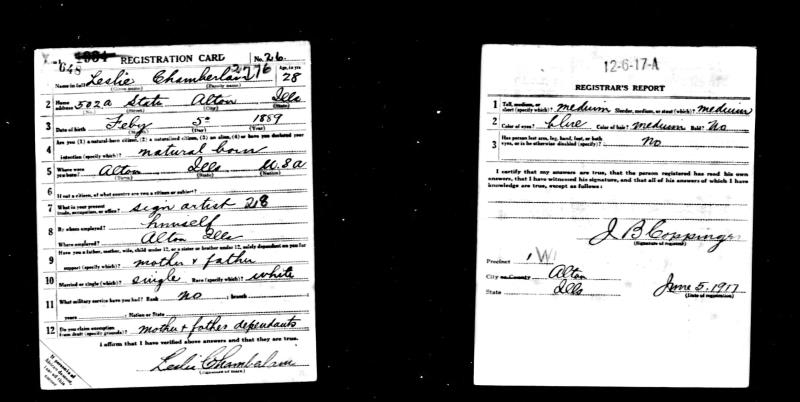 648 1664 REGISTRATION CARD No. 26
Name in full Leslie Chamberlain 2776 Age, in yrs 28
(Given name) (Family name)
2 Home address 502a State Alton Ills
(No.) (Street) (City) (State)
3 Date of birth Feby 5 1889
(Month) (Day) (Year)
4 Are you (1) a natural-born citizen, (2) a naturalized citizen, (3) an alien, (4) or have you declared your
intention (specify which)? natural born
5 Where were you born? Alton Ills U.S.A
(Town) (State) (Nation)
6 If not a citizen, of what country are you a citizen or subject?
7 What is your present trade, occupation, or office? sign artist 28
8 By whom employed? himself
Where employed? Alton Ills
9 Have you a father, mother, wife, child under 12, or a sister or brother under 12, solely dependent on you for
support (specify which)? mother & father
10 Married or single (which)? single Race (specify which)? white
11 What military service have you had? Rank no ; branch
years ; Nation or State
12 Do you claim exemption from draft (specify grounds)? mother & father dependants
I affirm that I have verified above answers and that they are true.
Leslie Chamberlain
(Signature or mark)
If person is of African descent, tear off this corner
12-6-17-A
REGISTRAR'S REPORT
1 Tall, medium, or short (specify which)? medium Slender, medium, or stout (which)? medium
2 Color of eyes? blue Color of hair? medium Bald? No
3 Has person lost arm, leg, hand, foot, or both eyes, or is he otherwise disabled (specify)? No
I certify that my answers are true, that the person registered has read his own
answers, that I have witnessed his signature, and that all of his answers of which I have
knowledge are true, except as follows:
J B Coppinger
(Signature of registrar)
Precinct 1 W
City or County Alton
State Ills June 5. 1917
(Date of registration)